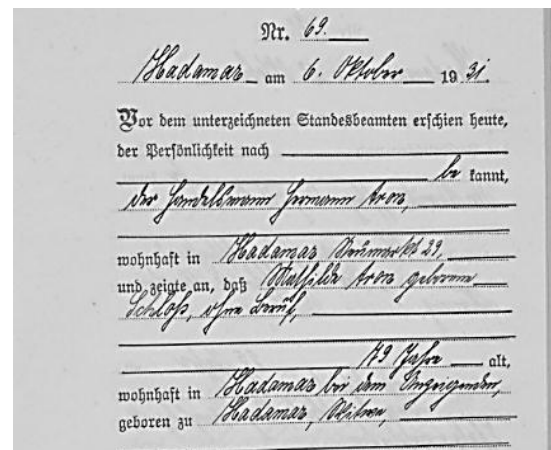 Nr. 69.
Hadamar am 6. Oktober 19 31.
Vor dem unterzeichneten Standesbeamten erschien heute,
der Persönlichkeit nach
be kannt,
der Handelsmann Hermann Aron,
wohnhaft in Hadamar Neumarkt 29,
und zeigte an, daß Mathilde Aron geborene
Schloß, ohne Beruf,
79 Jahre alt,
wohnhaft in Hadamar bei dem Anzeigenden,
geboren zu Hadamar, Witwe,